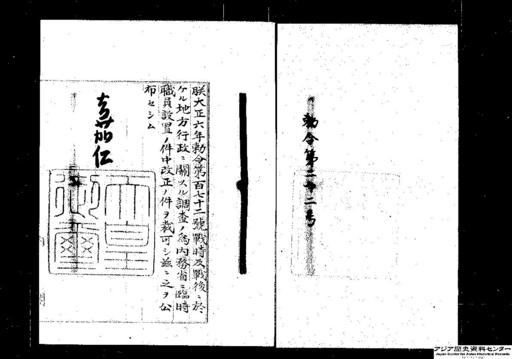 勅令第二十二号
朕大正六年勅令第百七十二號戰時及戰後ニ於
ケル地方行政ニ關スル調査ノ爲內務省ニ臨時
職員設置ノ件中改正ノ件ヲ裁可シ茲ニ之ヲ公
布セシム
嘉仁
アジア歴史資料センター
Japan Center for Asian Historical Records